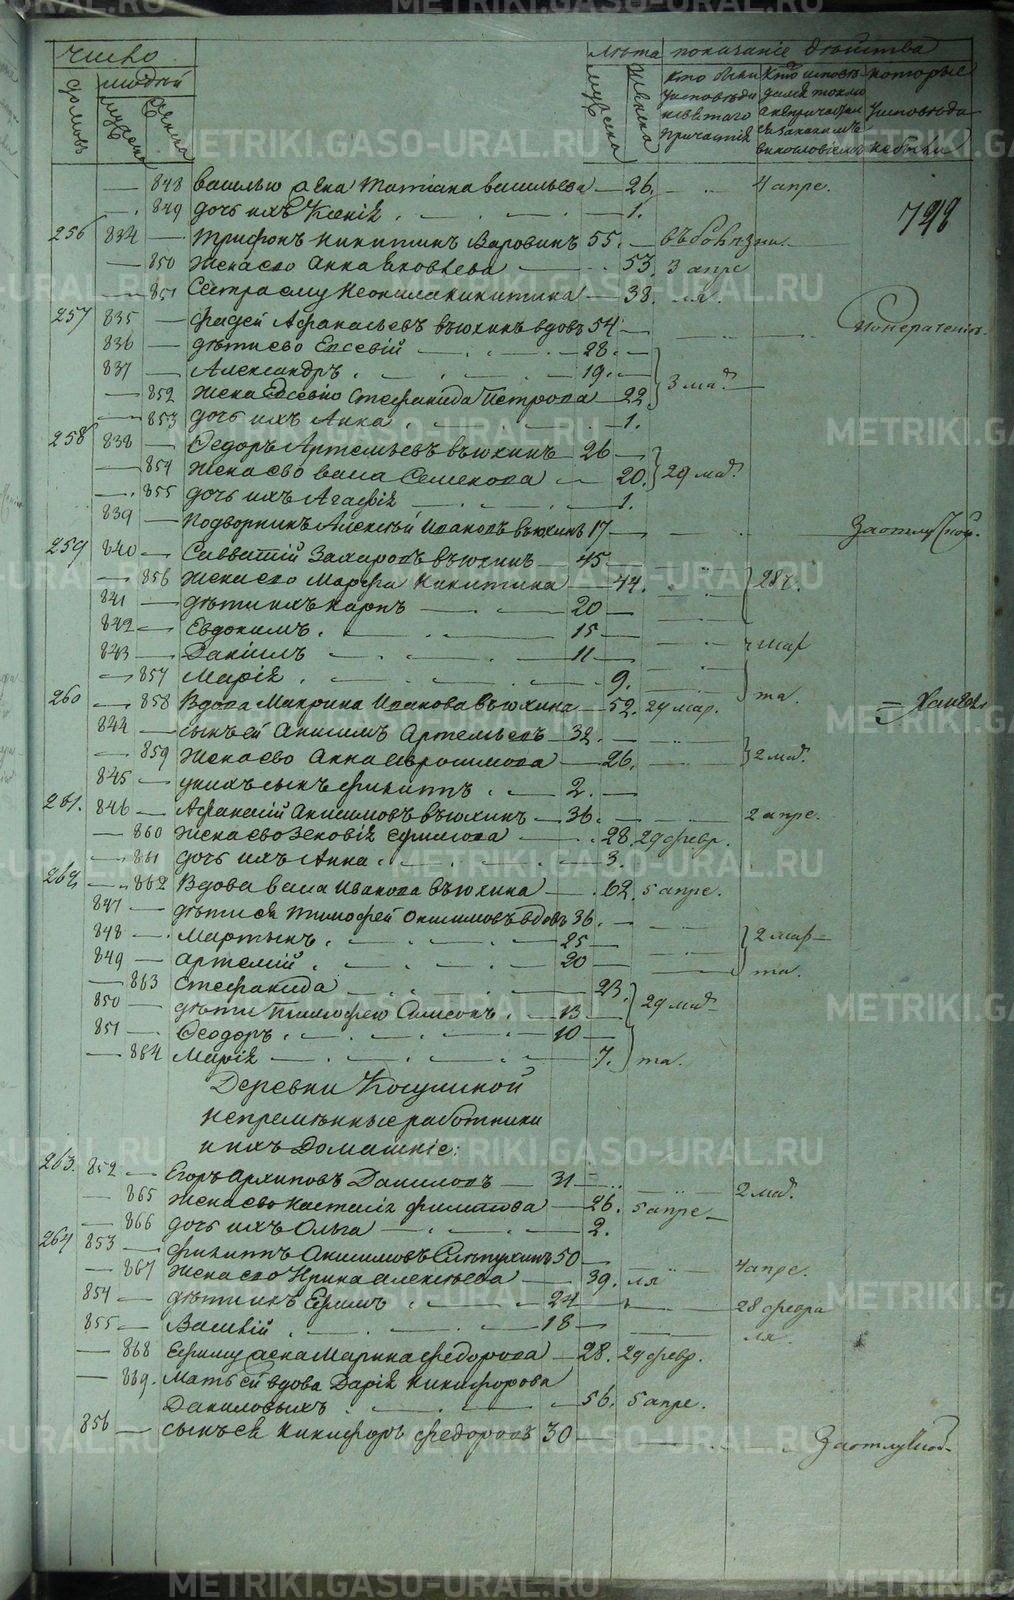 число
домовъ
людей
мужска
женска
лѣта
мужска
женска
показаніе дѣйства
кто были у исповѣди и святаго причастія
кто исповѣдался токмо а не причастился и за какимъ винословіемъ
которые у исповѣди не были
848 Василью жена Татіана Васильева 26. 4 апре.
849 дочь ихъ Ксенія 1.
256 834 Трифонъ Никитинъ 55. въ болѣзни
850 жена его Анна Яковлева 53. 3 апре
851 Сестра ему Неонила Никитина 38. ля.
257 835 Фадей Афанасьевъ Вьюхинъ вдовъ 54
836 дѣти его Евсевій 28.
837 Александръ 19.
852 жена Евсевію Стефанида Петрова 22 3 ма.
853 дочь ихъ Анна 1.
258 838 Ѳедоръ Артемьевъ Вьюхинъ 26
854 жена его Васса Семенова 20. 29 ма.
855 дочь ихъ Агафія 1.
839 Подворникъ Алексѣй Ивановъ Вьюхинъ 17 За отлучкой.
259 840 Савватій Захаровъ Вьюхинъ 45.
856 жена его Марфа Никитина 44. 28 ч.
841 дѣти ихъ Карпъ 20
842 Евдокимъ 15
843 Даніилъ 11 мар
857 Марія 9.
та.
260 858 Вдова Макрина Иванова Вьюхина 52. 29 мар.
844 сынъ ей Анисимъ Артемьевъ 32.
859 жена его Анна Аврамова 26. 2 ма.
845 у нихъ сынъ Филиппъ 2.
261. 846 Афанасій Анисимовъ Вьюхинъ 36. 2 апре.
860 жена его Зеновія Ермилова 28. 29 февр.
861 дочь ихъ Анна 3.
262 862 Вдова Васса Иванова Вьюхина 62. 5 апре.
847 дѣти ея Тимофей Анисимовъ вдовъ 36.
848 Мартынъ 25 2 мар
849 Артемій 20 та.
863 Стефанида 23.
850 дѣти Тимофею Самсонъ 13 29 ма
851 Ѳеодоръ 10
864 Марія 7. та.
Деревни
непремѣнные работники
и ихъ домашніе:
263. 852 Егоръ Архиповъ Даниловъ 31 2 ма.
865 жена его Наталія Филиппова 26. 5 апре
866 дочь ихъ Ольга 2.
264 853 Филиппъ Анисимовъ Слѣпухинъ 50 4 апре.
867 жена его Ирина Алексѣева 39. ля
854 дѣти ихъ Ефимъ 24 28 февра
855 Василій 18 ля.
868 Ефиму жена Марина Федорова 28. 29 февр.
869. Мать ей вдова Дарія Никифорова
Даниловыхъ 56. 5 апре.
856 сынъ ея Никифоръ Федоровъ 30 За отлучкой